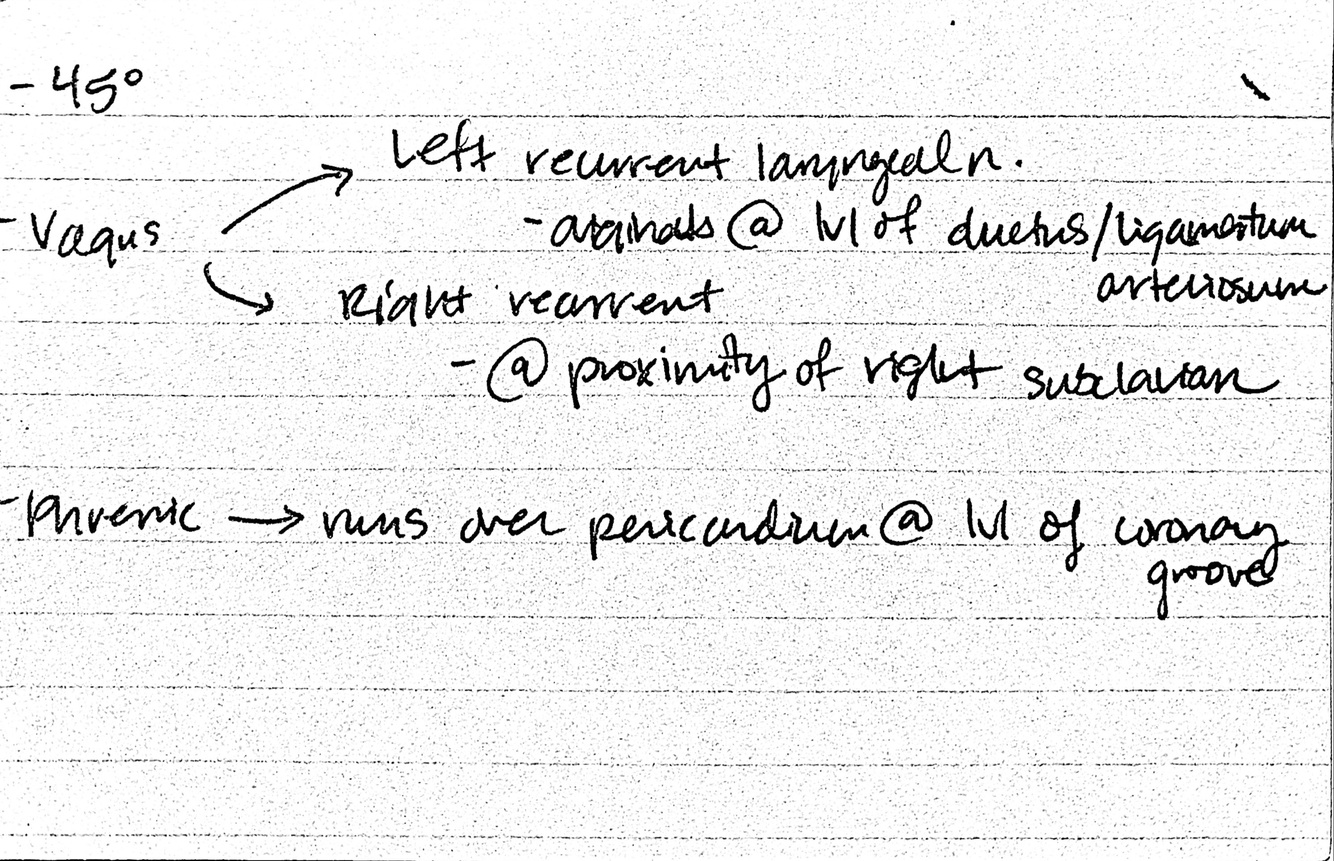 - 45°
Left recurrent laryngeal n.
- Vagus
- originals @ lvl of ductus/ligamentum
arteriosum
Right recurrent
- @ proximity of right subclavian
- Phrenic → runs over pericardium @ lvl of coronary
groove